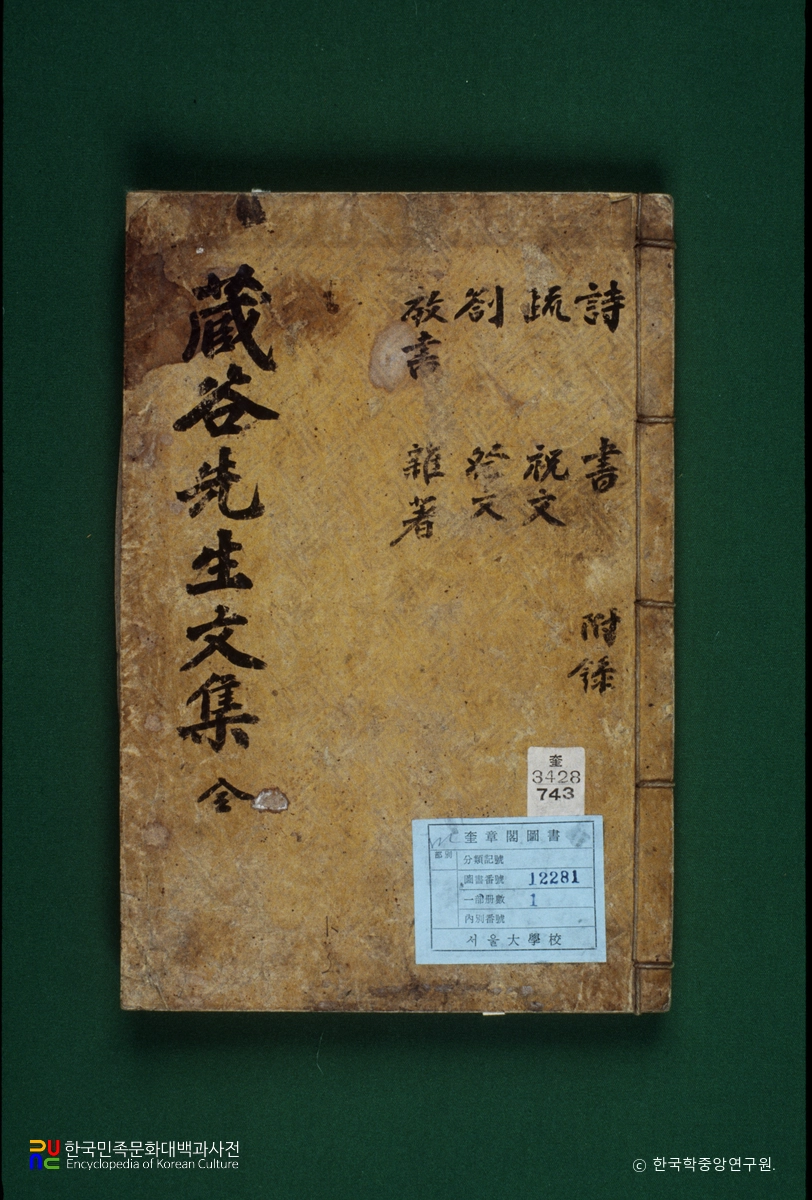 詩 書 附錄
疏 祝文
劄 祭文
敎書 雜著
蔵谷先生文集 全
奎
3428
743
奎章閣圖書
分類記號
圖書番號 12281
一部冊數 1
內別番號
서울大學校
한국민족문화대백과사전
Encyclopedia of Korean Culture
© 한국학중앙연구원.